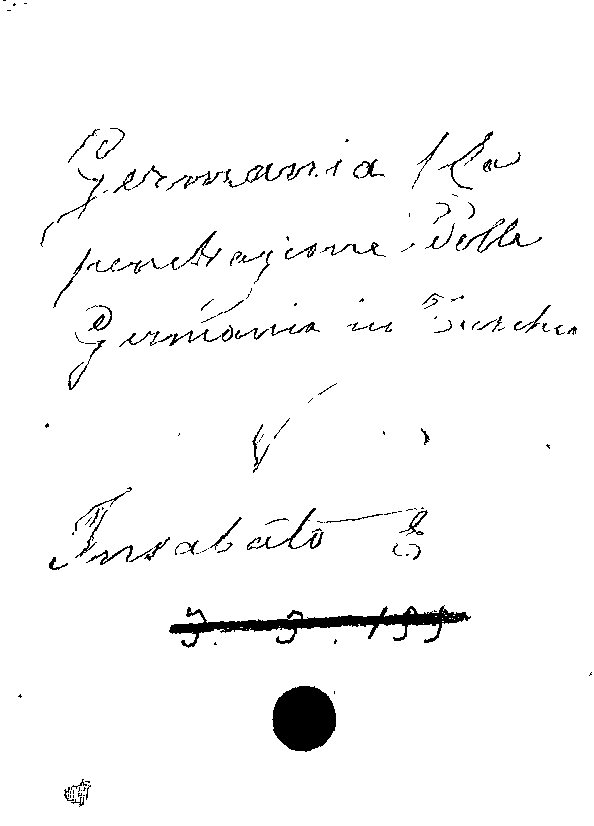 Germania / La
penetrazione della
Germania in Turchia
Insabato E
3. 3. 199